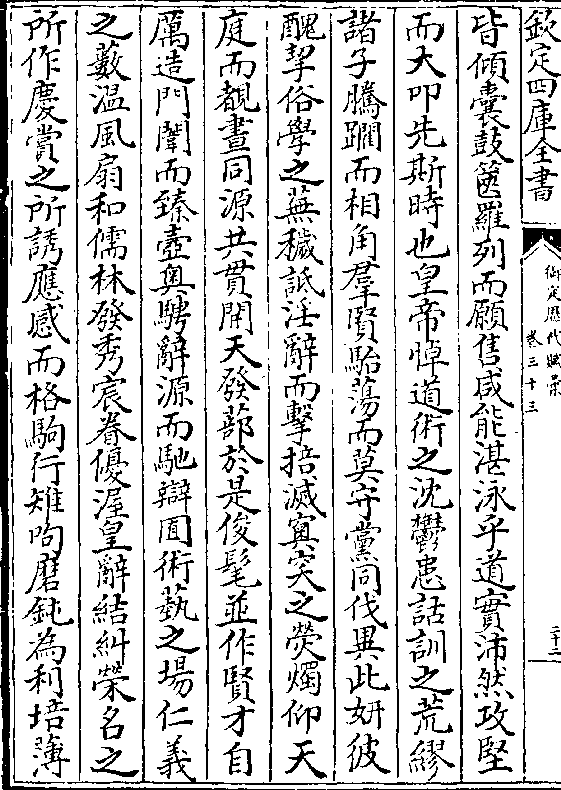 欽定四庫全書
御定歷代賦彙
卷三十三
二十二
皆傾囊鼓篋羅列而願售咸能湛泳乎道實沛然攻堅
而大叩先斯時也皇帝悼道術之沈鬱患詁訓之荒繆
諸子騰躝而相角羣賢駘蕩而莫守黨同伐異此妍彼
醜挈俗學之蕪穢詆淫辭而擊掊滅窴穾之熒燭仰天
庭而覩晝同源共貫開天發蔀於是俊髦並作賢才自
厲造門闈而臻壼奥騁辭源而馳辯囿術藝之場仁義
之藪温風扇和儒林發秀宸眷優渥皇辭結糾榮名之
所作慶賞之所誘應感而格駒行雉呴磨鈍為利培薄